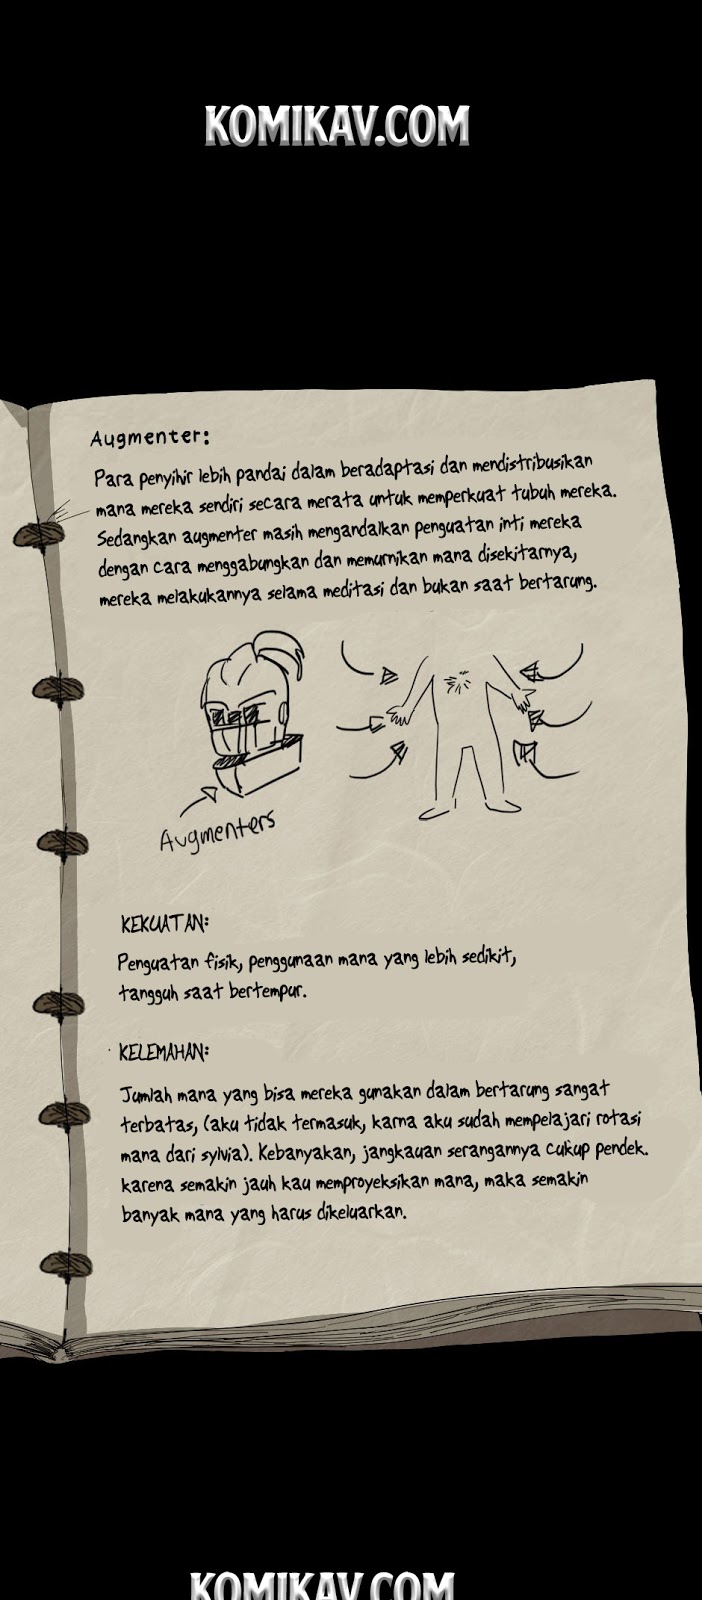 KOMIKAV.COM
Augmenter:
Para penyihir lebih pandai dalam beradaptasi dan mendistribusikan
mana mereka sendiri secara merata untuk memperkuat tubuh mereka.
Sedangkan augmenter masih mengandalkan penguatan inti mereka
dengan cara menggabungkan dan memurnikan mana disekitarnya,
mereka melakukannya selama meditasi dan bukan saat bertarung.
Augmenters
KEKUATAN:
Penguatan fisik, penggunaan mana yang lebih sedikit,
tangguh saat bertempur.
KELEMAHAN:
Jumlah mana yang bisa mereka gunakan dalam bertarung sangat
terbatas, (aku tidak termasuk, karna aku sudah mempelajari rotasi
mana dari sylvia). Kebanyakan, jangkauan serangannya cukup pendek.
karena semakin jauh kau memproyeksikan mana, maka semakin
banyak mana yang harus dikeluarkan.
KOMIKAV.COM